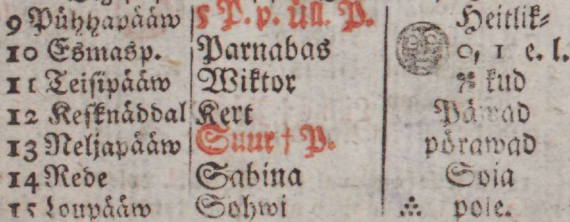 9 Pühhapääw 5 P. p. Üll. P. Heitlik-
10 Esmasp. Parnabas 0, 1 e. l.
11 Teisipääw Wiktor kud
12 Kesknäddal Kert Päwad
13 Neljapääw Suur † P. pörawad
14 Rede Sabina Soia
15 Loupääw Sohwi pole.